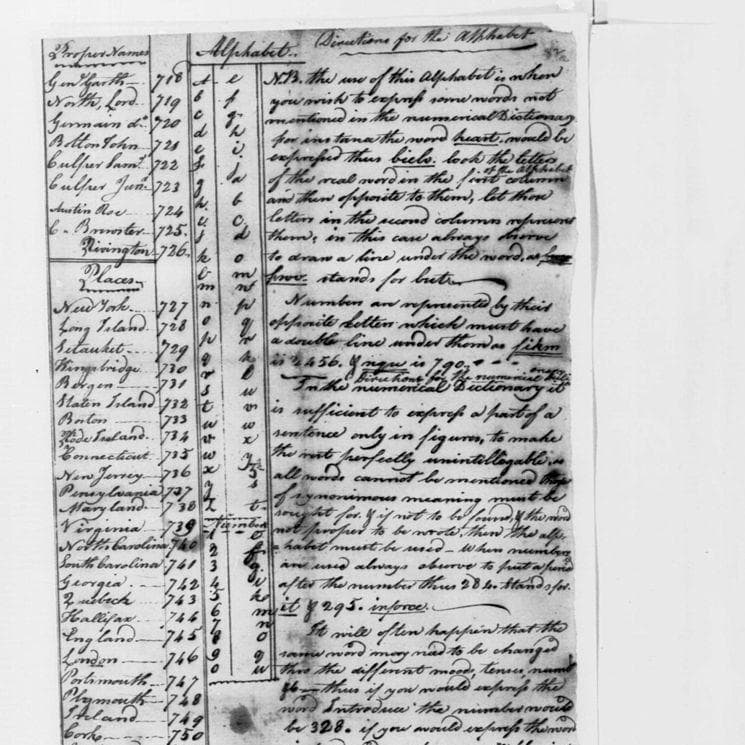 Proper Names
Gen.l Garth 718
North, Lord 719
Germain do 720
Bolton John 721
Culper Saml. 722
Culper Junr. 723
Austin Roe 724
C. Brewster 725.
Rivington 726.
Places
New York. 727
Long Island 728
Setauket 729
Kingsbridge 730
Bergen 731
Staten Island 732
Boston 733
Rhode Island 734
Connecticut 735
New Jersey 736
Pensylvania 737
Maryland 738
Virginia 739
North Carolina 740
South Carolina 741
Georgia 742
Quebeck 743
Hallifax 744
England 745
London 746
Portsmouth 747
Plymouth 748
Ireland 749
Cork 750
Alphabet.
a e
b f
c g
d h
e i
f j
g a
h b
i c
j d
k o
l m
m n
n p
o q
p r
q k
r l
s u
t v
u w
v x
w y
x z
y s
z t
Numbers
1 e
2 f
3 g
4 i
5 k
6 m
7 n
8 o
9 q
0 u
Directions for the Alphabet
N.B. the use of this Alphabet is when
you wish to express some words not
mentioned in the numerical Dictionary
for instance the word heart. would be
expressed thus biels. look the letters
of the real word in the first column of the Alphabet
and then opposite to them, let those
letters in the second column represent
them; in this case always observe
to draw a line under the word, as
fwv. stands for but
Numbers are represented by their
opposite Letters which must have
a double line under them as fikm
is 2456. & nqu is 790.
Directions for the numerical
In the numerical Dictionary it
is sufficient to express a part of a
sentence only in figures, to make
the rest perfectly unintellegable, as
all words cannot be mentioned those
of synonimous meaning must be
sought for. & if not to be found, & the word
not proper to be wrote, then the alp-
habet must be used - When numbers
are used always observe to put a period
after the number thus 284. stands for.
it & 295. inforce.
It will often happen that the
same word may need to be changed
thro the different moods, tenses numb
thus if you would express the
word Introduce the number would
be 328. if you would express the word